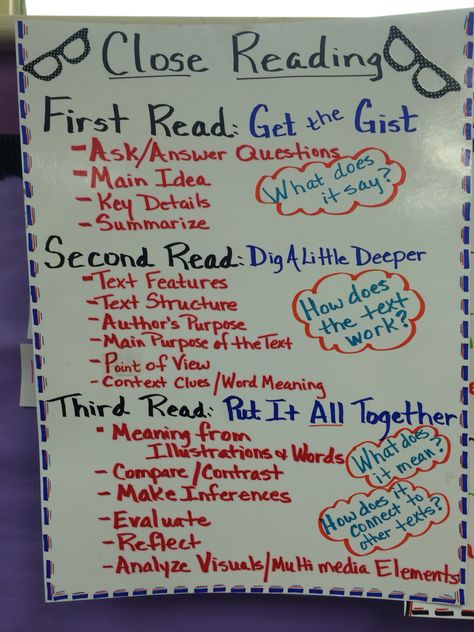 Close Reading
First Read: Get the Gist
- Ask/Answer Questions
- Main Idea
- Key Details
- Summarize
What does
it say?
Second Read: Dig A Little Deeper
- Text Features
- Text Structure
- Author's Purpose
- Main Purpose of the Text
- Point of View
- Context Clues/Word Meaning
How does
the text
work?
Third Read: Put It All Together
- Meaning from
Illustrations & Words
- Compare/Contrast
- Make Inferences
- Evaluate
- Reflect
- Analyze Visuals/Multi media Elements
What does
it mean?
How does it
connect to
other texts?